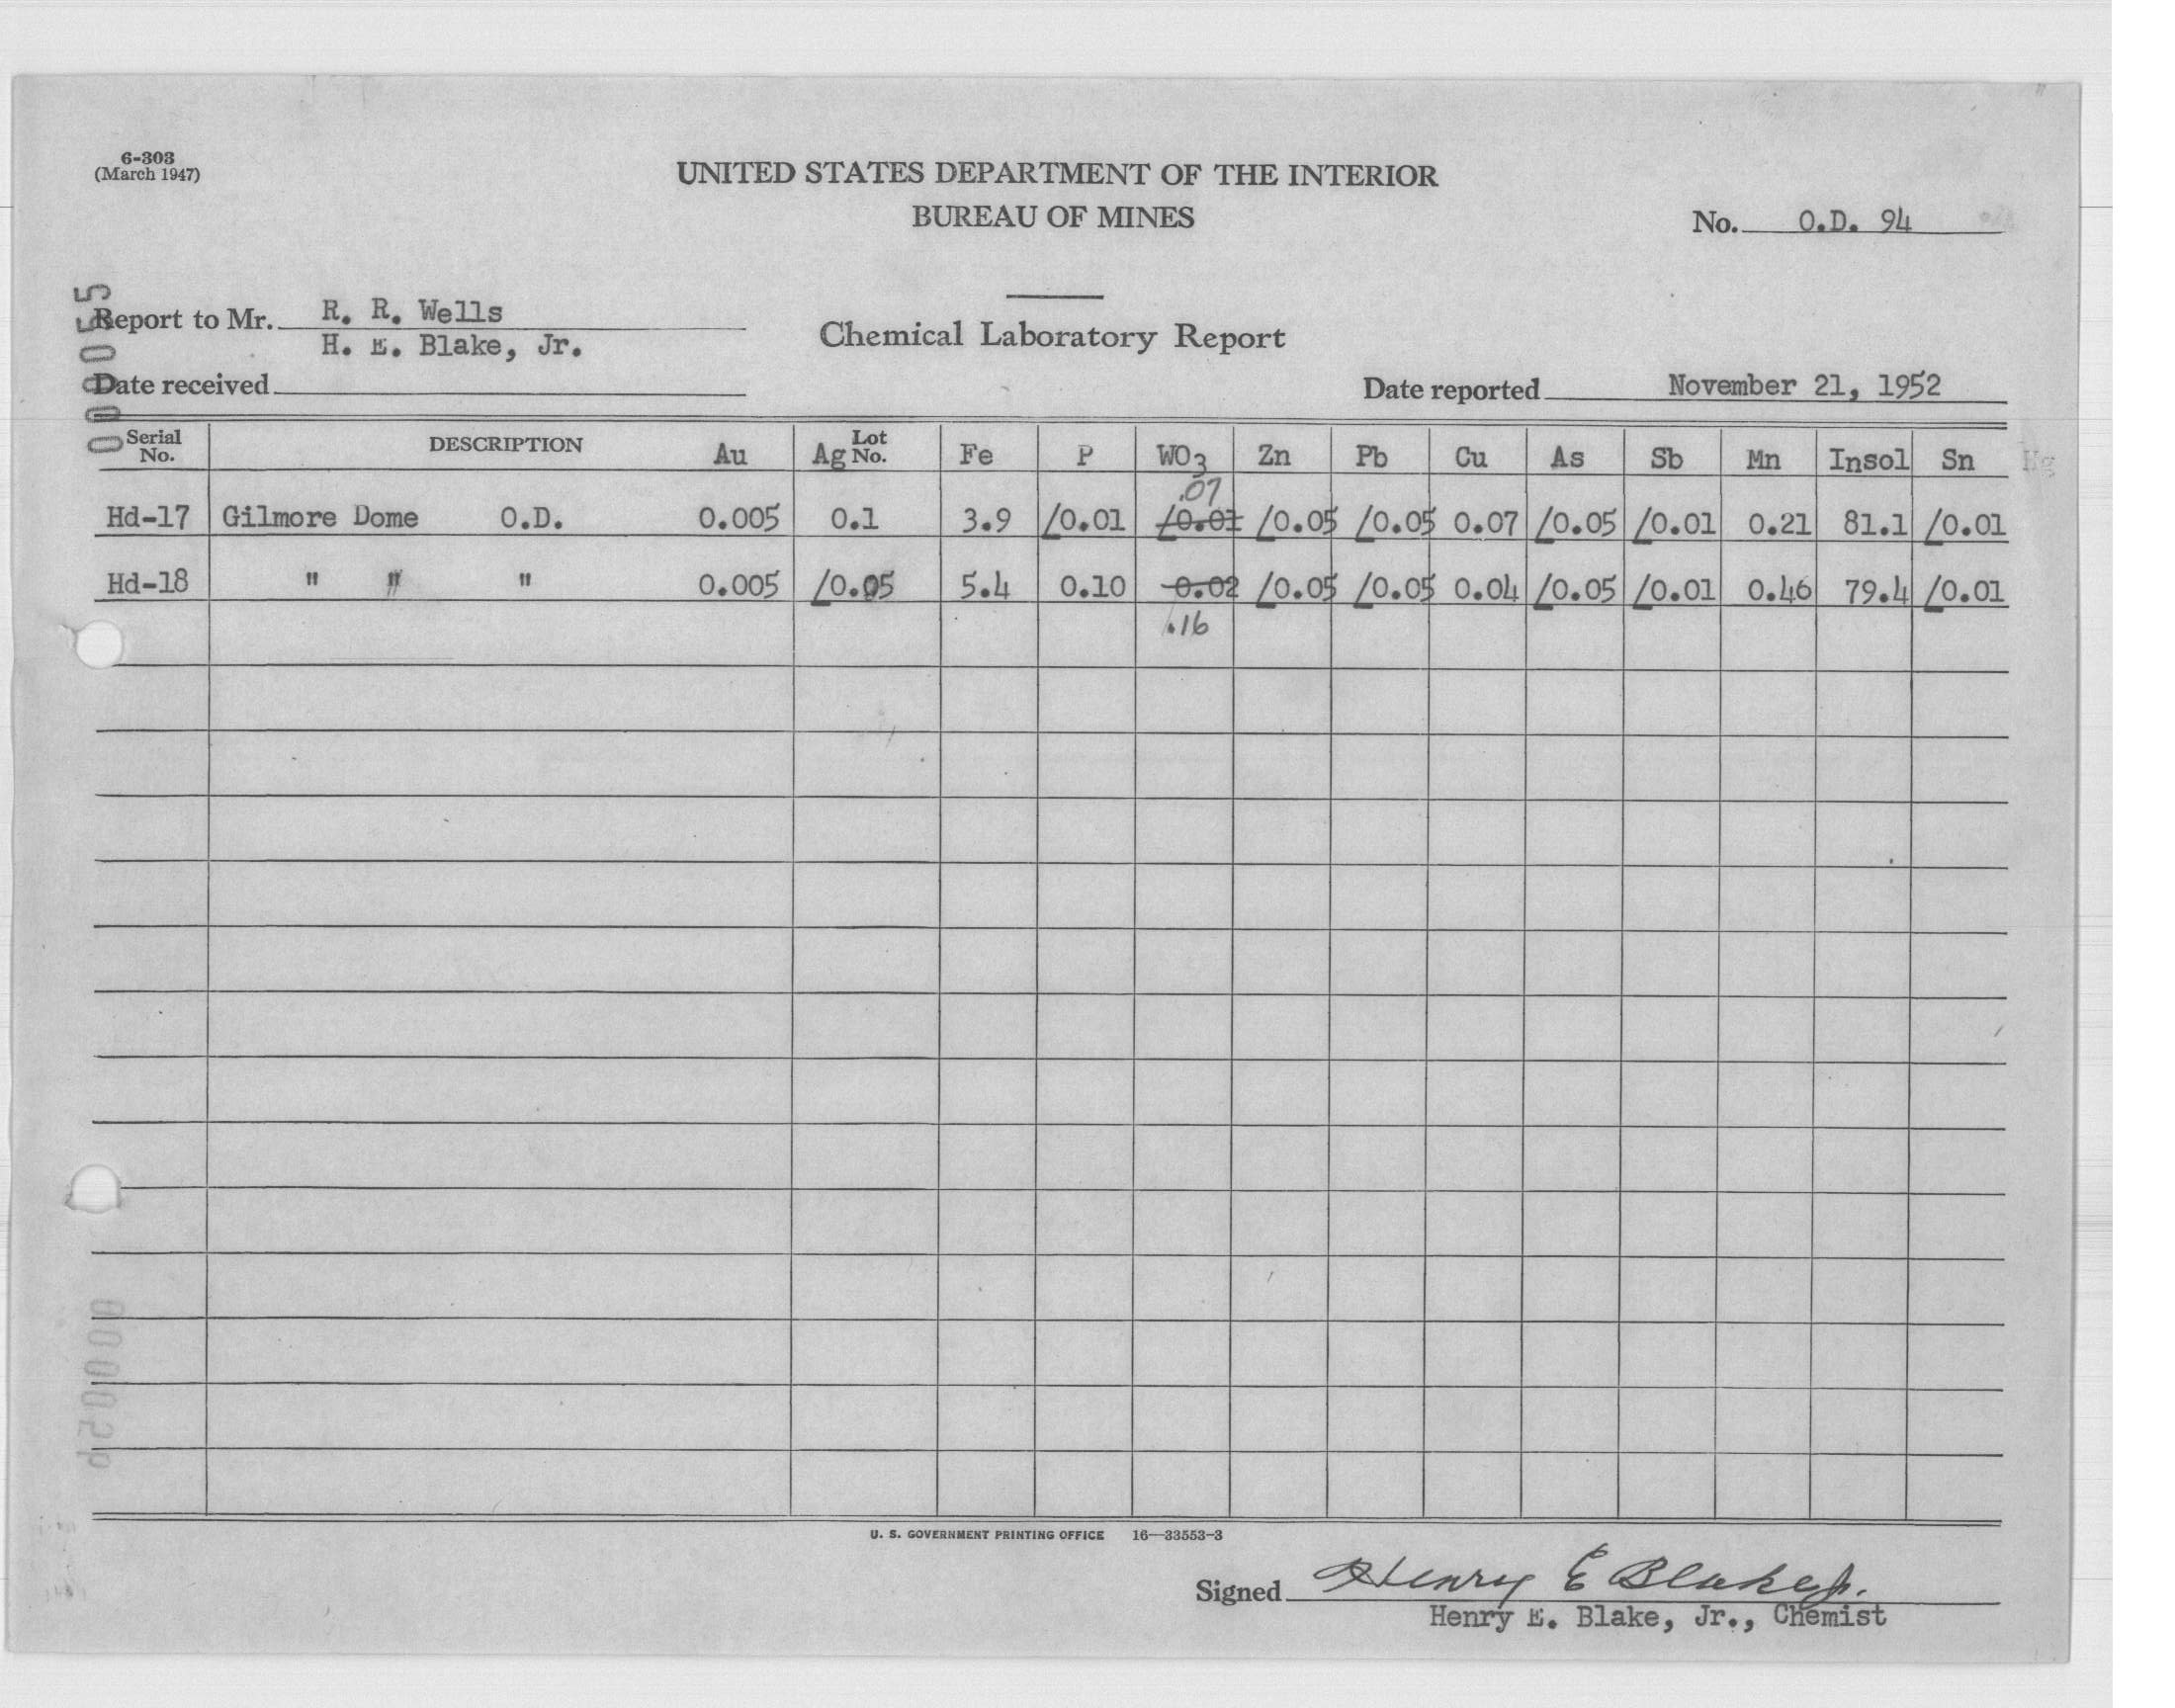 6-303
(March 1947)
UNITED STATES DEPARTMENT OF THE INTERIOR
BUREAU OF MINES
No. O.D. 94
Report to Mr. R. R. Wells
H. E. Blake, Jr.
Chemical Laboratory Report
Date received
Date reported November 21, 1952
000055
Serial No. DESCRIPTION Au Ag Lot No. Fe P WO3 Zn Pb Cu As Sb Mn Insol Sn Hg
.07
Hd-17 Gilmore Dome O.D. 0.005 0.1 3.9 /0.01 /0.01 /0.05 /0.05 0.07 /0.05 /0.01 0.21 81.1 /0.01
Hd-18 " " " 0.005 /0.05 5.4 0.10 0.02 /0.05 /0.05 0.04 /0.05 /0.01 0.46 79.4 /0.01
.16
U. S. GOVERNMENT PRINTING OFFICE 16—33553-3
Signed Henry E Blake Jr.
Henry E. Blake, Jr., Chemist